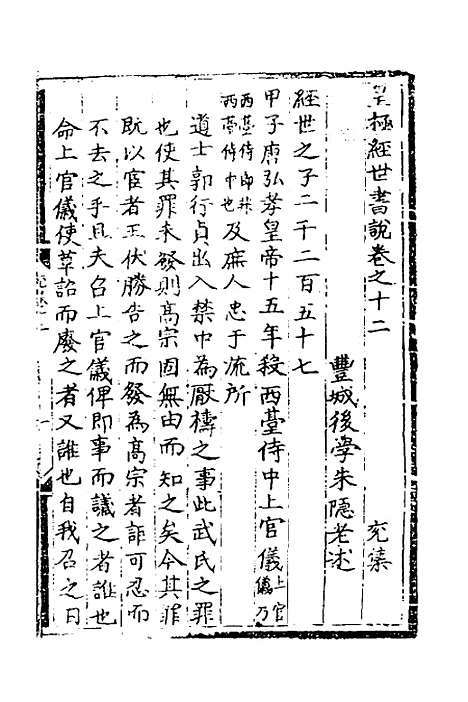 皇極經世書說卷之十二　充集
豐城後學朱隱老述
經世之子二千二百五十七
甲子唐弘孝皇帝十五年殺西臺侍中上官儀上官儀乃
西臺侍郎非西臺侍中也及庶人忠于流所
道士郭行貞出入禁中為厭禱之事此武氏之罪
也使其罪未發則高宗固無由而知之矣今其罪
既以宦者王伏勝告之而發為高宗者詎可忍而
不去之乎且夫召上官儀俾即事而議之者誰也
命上官儀使草詔而廢之者又誰也自我召之曰